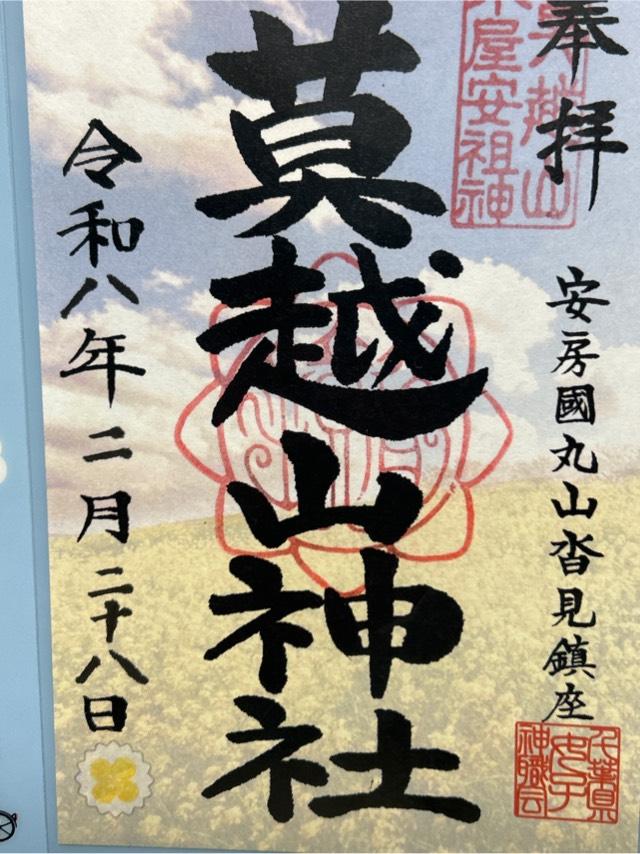 奉拝
安房國丸山沓見鎮座
莫越山神社
令和八年二月二十八日
莫越山
屋安祖神
千葉県
女子
神職会